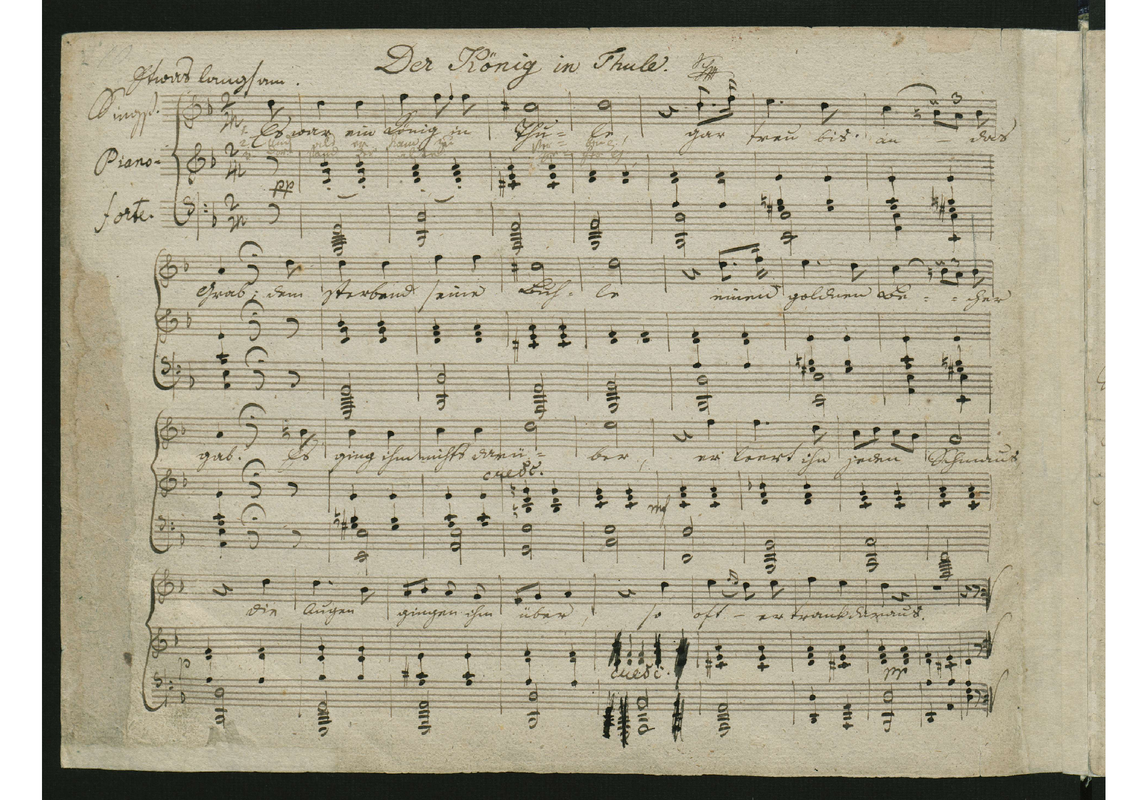 Der König in Thule.
Etwas langsam.
Singst.
Es war ein König in Thu- le, gar treu bis an - das
Piano-
pp
forte.
Grab; dem sterbend seine Buh- le einen goldnen Be - - cher
gab. Es ging ihm nichts darü- ber, er leert ihn jeden Schmaus
cresc.
mf
die Augen gingen ihm über, so oft - er trank daraus.
p
cresc.
pp